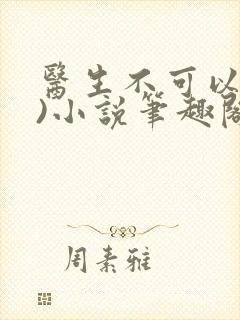 醫生不可以
)小說筆趣閣
周素雅